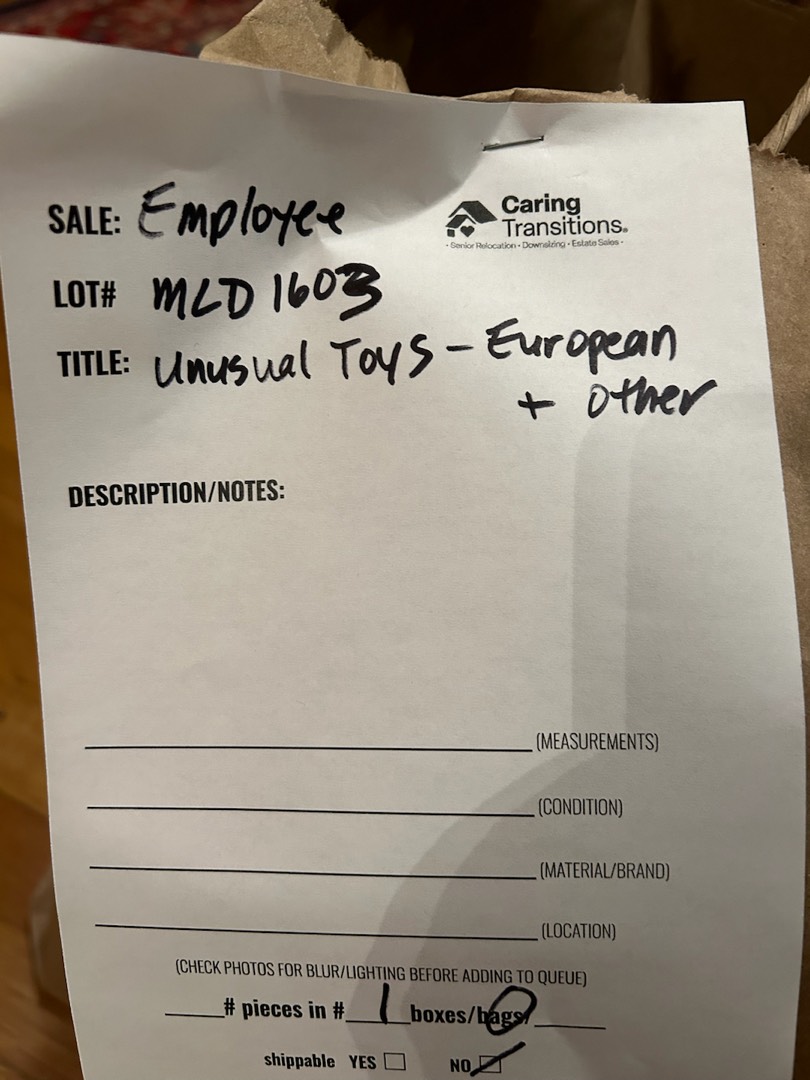 SALE: Employee
Caring
Transitions.
• Senior Relocation • Downsizing • Estate Sales •
LOT# MLD 1603
TITLE: Unusual Toys - European
+ other
DESCRIPTION/NOTES:
(MEASUREMENTS)
(CONDITION)
(MATERIAL/BRAND)
(LOCATION)
(CHECK PHOTOS FOR BLUR/LIGHTING BEFORE ADDING TO QUEUE)
# pieces in # 1 boxes/bags/
shippable YES NO